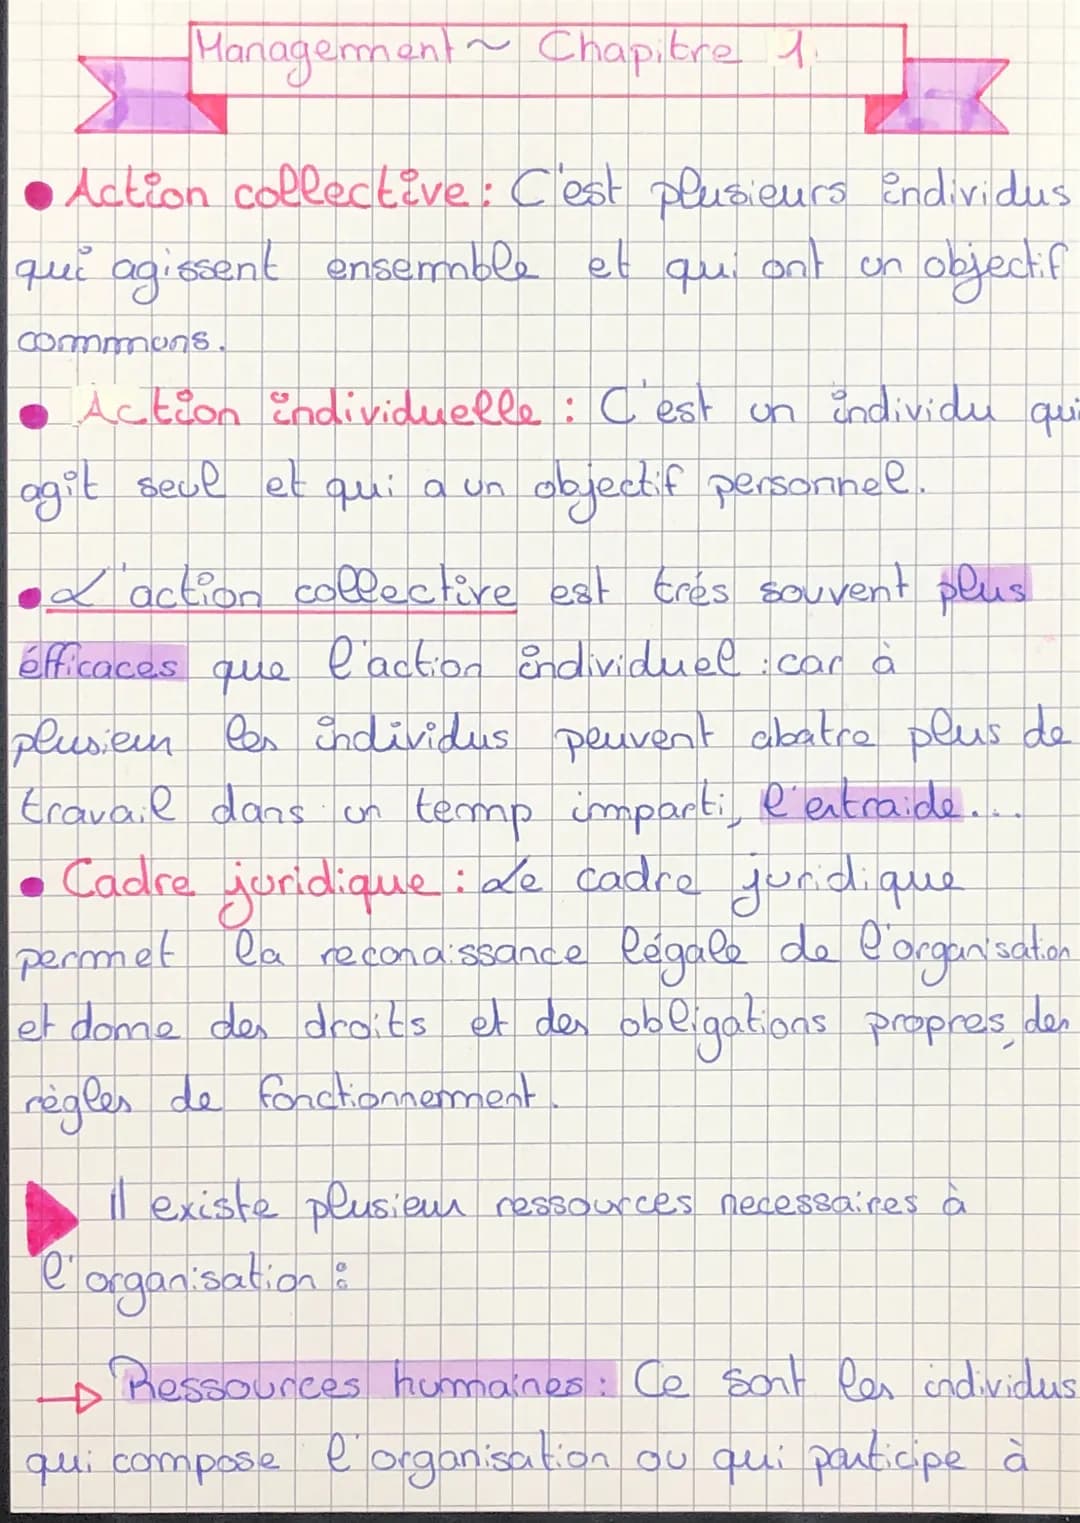 Management ~ Chapitre 1.
• Action collective : C'est plusieurs individus
qui agissent ensemble et qui ont un objectif
commmuns.
• Action individuelle : C'est un individu qui
agit seul et qui a un objectif personnel.
• L'action collective est trés souvent plus
éfficaces que l'action individuel : car à
plusieur les individus peuvent abatre plus de
travail dans un temp imparti, l'entraide...
• Cadre juridique : Le cadre juridique
permet la reconaissance légale de l'organisation
et donne des droits et des obligations propres, des
règles de fonctionnement.
Il existe plusieur ressources necessaires à
l'organisation :
→ Ressources humaines : Ce sont les individus
qui compose l'organisation ou qui participe à